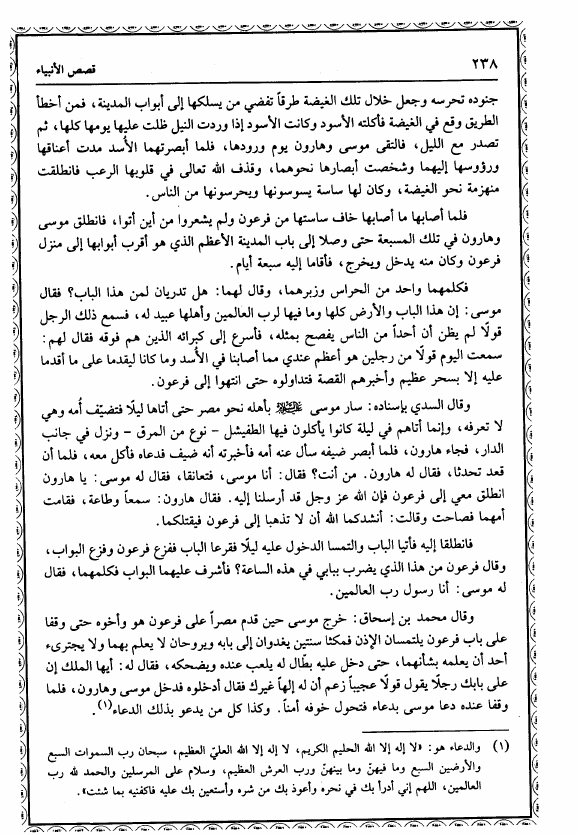 ٢٣٨
قصص الأنبياء
جنوده تحرسه وجعل خلال تلك الغيضة طرقاً تفضي من يسلكها إلى أبواب المدينة، فمن أخطأ
الطريق وقع في الغيضة فأكلته الأسود وكانت الأسود إذا وردت النيل ظلت عليها يومها كلها، ثم
تصدر مع الليل، فالتقى موسى وهارون يوم ورودها، فلما أبصرتهما الأُسد مدت أعناقها
ورؤوسها إليهما وشخصت أبصارها نحوهما، وقذف الله تعالى في قلوبها الرعب فانطلقت
منهزمة نحو الغيضة، وكان لها ساسة يسوسونها ويحرسونها من الناس.
فلما أصابها ما أصابها خاف ساستها من فرعون ولم يشعروا من أين أتوا، فانطلق موسى
وهارون في تلك المسبعة حتى وصلا إلى باب المدينة الأعظم الذي هو أقرب أبوابها إلى منزل
فرعون وكان منه يدخل ويخرج، فأقاما إليه سبعة أيام.
فكلمهما واحد من الحراس وزبرهما، وقال لهما: هل تدريان لمن هذا الباب؟ فقال
موسى: إن هذا الباب والأرض كلها وما فيها لرب العالمين وأهلها عبيد له، فسمع ذلك الرجل
قولًا لم يظن أن أحداً من الناس يفصح بمثله، فأسرع إلى كبرائه الذين هم فوقه فقال لهم:
سمعت اليوم قولًا من رجلين هو أعظم عندي مما أصابنا في الأُسد وما كانا ليقدما على ما أقدما
عليه إلا بسحر عظيم وأخبرهم القصة فتداولوه حتى انتهوا إلى فرعون.
وقال السدي بإسناده: سار موسى ﷺ بأهله نحو مصر حتى أتاها ليلًا فتضيّف أُمه وهي
لا تعرفه، وإنما أتاهم في ليلة كانوا يأكلون فيها الطفيشل - نوع من المرق - ونزل في جانب
الدار، فجاء هارون، فلما أبصر ضيفه سأل عنه أمه فأخبرته أنه ضيف فدعاه فأكل معه، فلما أن
قعد تحدثا، فقال له هارون. من أنت؟ فقال: أنا موسى، فتعانقا، فقال له موسى: يا هارون
انطلق معي إلى فرعون فإن الله عز وجل قد أرسلنا إليه. فقال هارون: سمعاً وطاعة، فقامت
أمهما فصاحت وقالت: أنشدكما الله أن لا تذهبا إلى فرعون فيقتلكما.
فانطلقا إليه فأتيا الباب والتمسا الدخول عليه ليلًا فقرعا الباب ففزع فرعون وفزع البواب،
وقال فرعون من هذا الذي يضرب ببابي في هذه الساعة؟ فأشرف عليهما البواب فكلمهما، فقال
له موسى: أنا رسول رب العالمين.
وقال محمد بن إسحاق: خرج موسى حين قدم مصراً على فرعون هو وأخوه حتى وقفا
على باب فرعون يلتمسان الإذن فمكثا سنتين يغدوان إلى بابه ويروحان لا يعلم بهما ولا يجترىء
أحد أن يعلمه بشأنهما، حتى دخل عليه بطّال له يلعب عنده ويضحكه، فقال له: أيها الملك إن
على بابك رجلًا يقول قولًا عجيباً زعم أن له إلهاً غيرك فقال أدخلوه فدخل موسى وهارون، فلما
وقفا عنده دعا موسى بدعاء فتحول خوفه أمناً. وكذا كل من يدعو بذلك الدعاء(١).
(١) والدعاء هو: «لا إله إلا الله الحليم الكريم، لا إله إلا الله العليّ العظيم، سبحان رب السموات السبع
والأرضين السبع وما فيهنّ وما بينهنّ ورب العرش العظيم، وسلام على المرسلين والحمد لله رب
العالمين، اللهم إني أدرأ بك في نحره وأعوذ بك من شره وأستعين بك عليه فاكفنيه بما شئت».